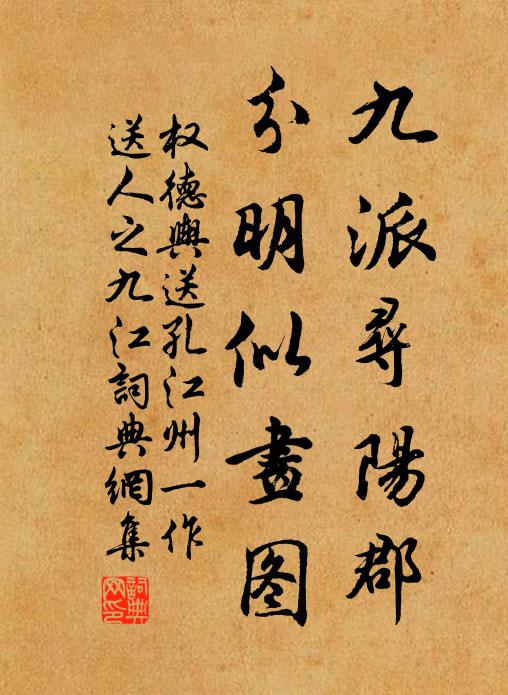 九派尋陽郡
分明似畫图
权德輿送孔江州一作
送人之九江詞典網集
詞典网印